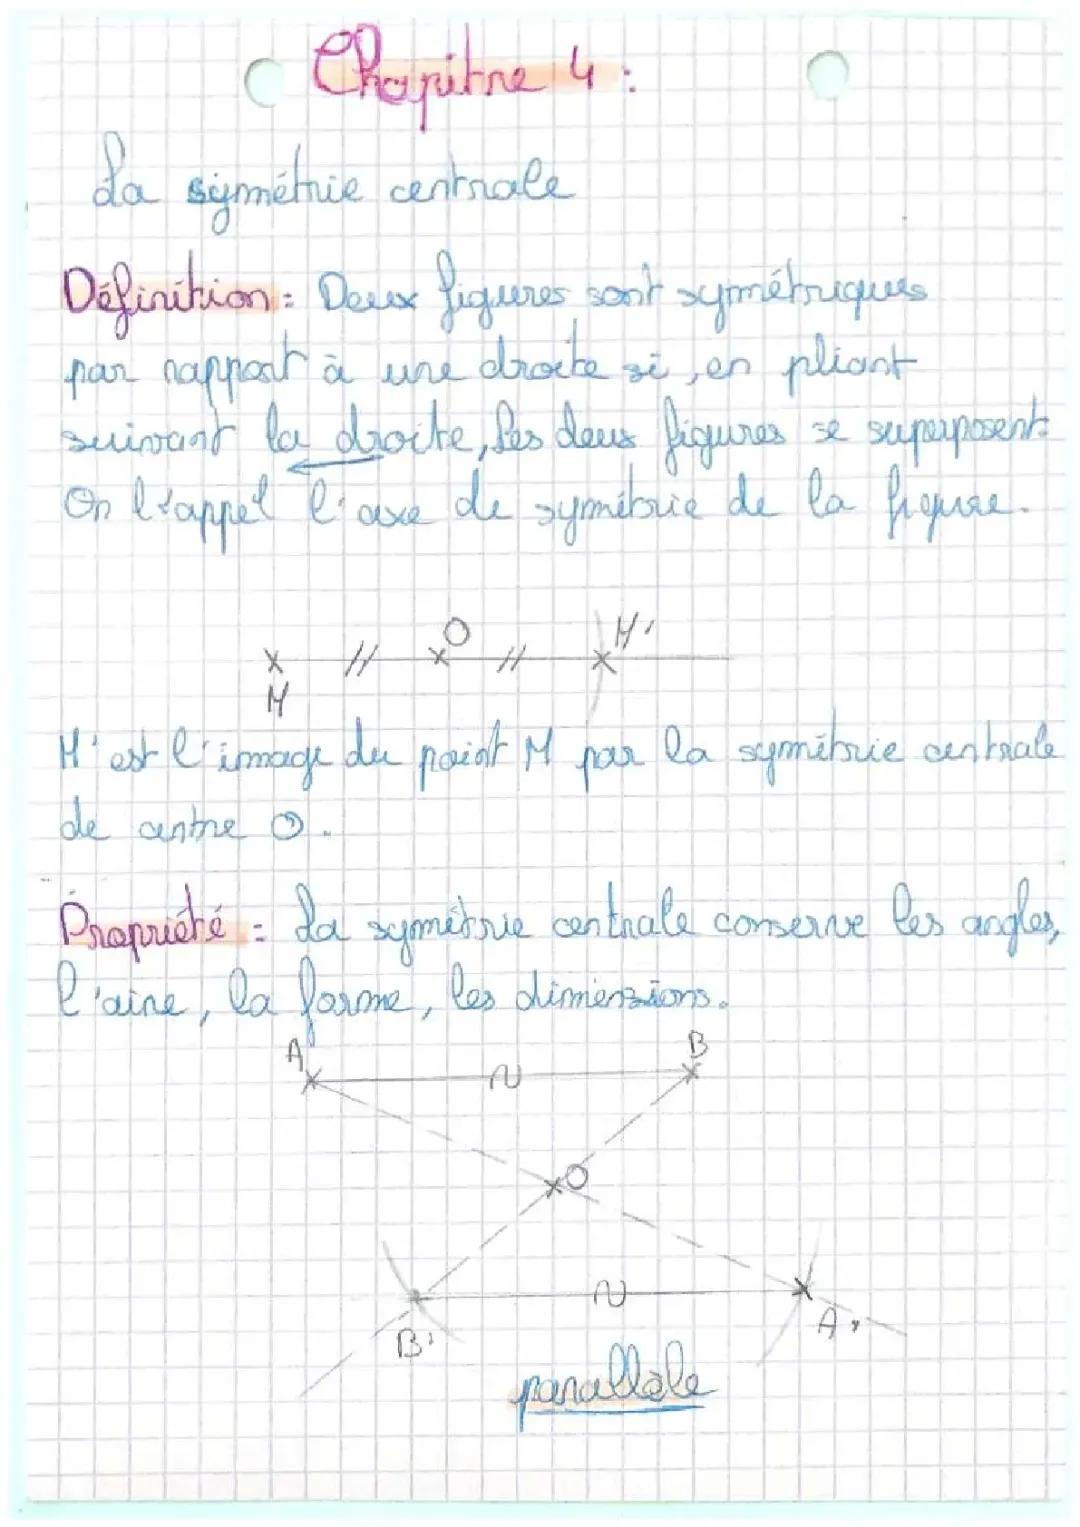 Chapitre 4 :
La symétrie centrale
Définition : Deux figures sont symétriques
par rapport à une droite si, en pliant
suivant la droite, les deux figures se superposent.
On l'appel l'axe de symétrie de la figure.
O
M'
M
M' est l'image du point M par la symétrie centrale
de centre O.
Propriété : La symétrie centrale conserve les angles,
l'aire, la forme, les dimensions.
A
B
O
B'
A'
parallèle